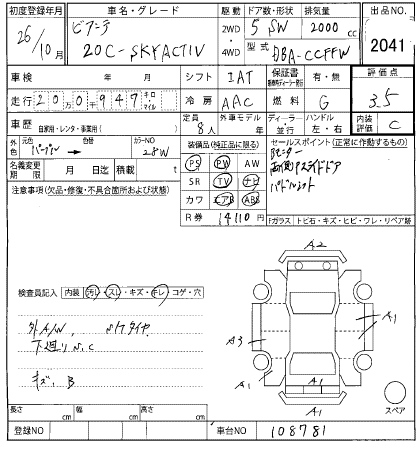 初度登録年月 車名・グレード 駆動 ドア数・形状 排気量 出品NO.
26/10月 ビアンテ 2WD・4WD 5 SW 2000 cc 2041
20C-SKYACTIV 型式 DBA-CCFFW
車検 年 月 シフト IAT 保証書 有・無 評価点
走行 20万0千947 キロ・マイル 冷房 AAC 燃料 G 3.5
車歴 自家用・レンタ・事業用( ) 定員 8人 外車モデル 年 ディーラー・並行 ハンドル 左・右 内装評価 C
外色 元色 パープル → 色 カラーNO 28W 装備品(純正品に限る) セールスポイント(正常に作動するもの)
名義変更期限 月 日迄 積載量 t PS PW AW
注意事項(欠品・修復・不具合箇所および状態) SR TV ナビ 両側パワスライドドア
カワ エアB ABS パドルシフト
R券 14110円 Fガラス トビ石・キズ・ヒビ・ワレ・リペア跡
A2
検査員記入 内装 汚レ・スレ・キズ・キレ・コゲ・穴
外A/W, N/Tタイヤ A3 A1
下廻りS,C
キズ, B A1 A1
A1 スペア
長さ cm 幅 cm 高さ cm
登録NO 車台NO 108781